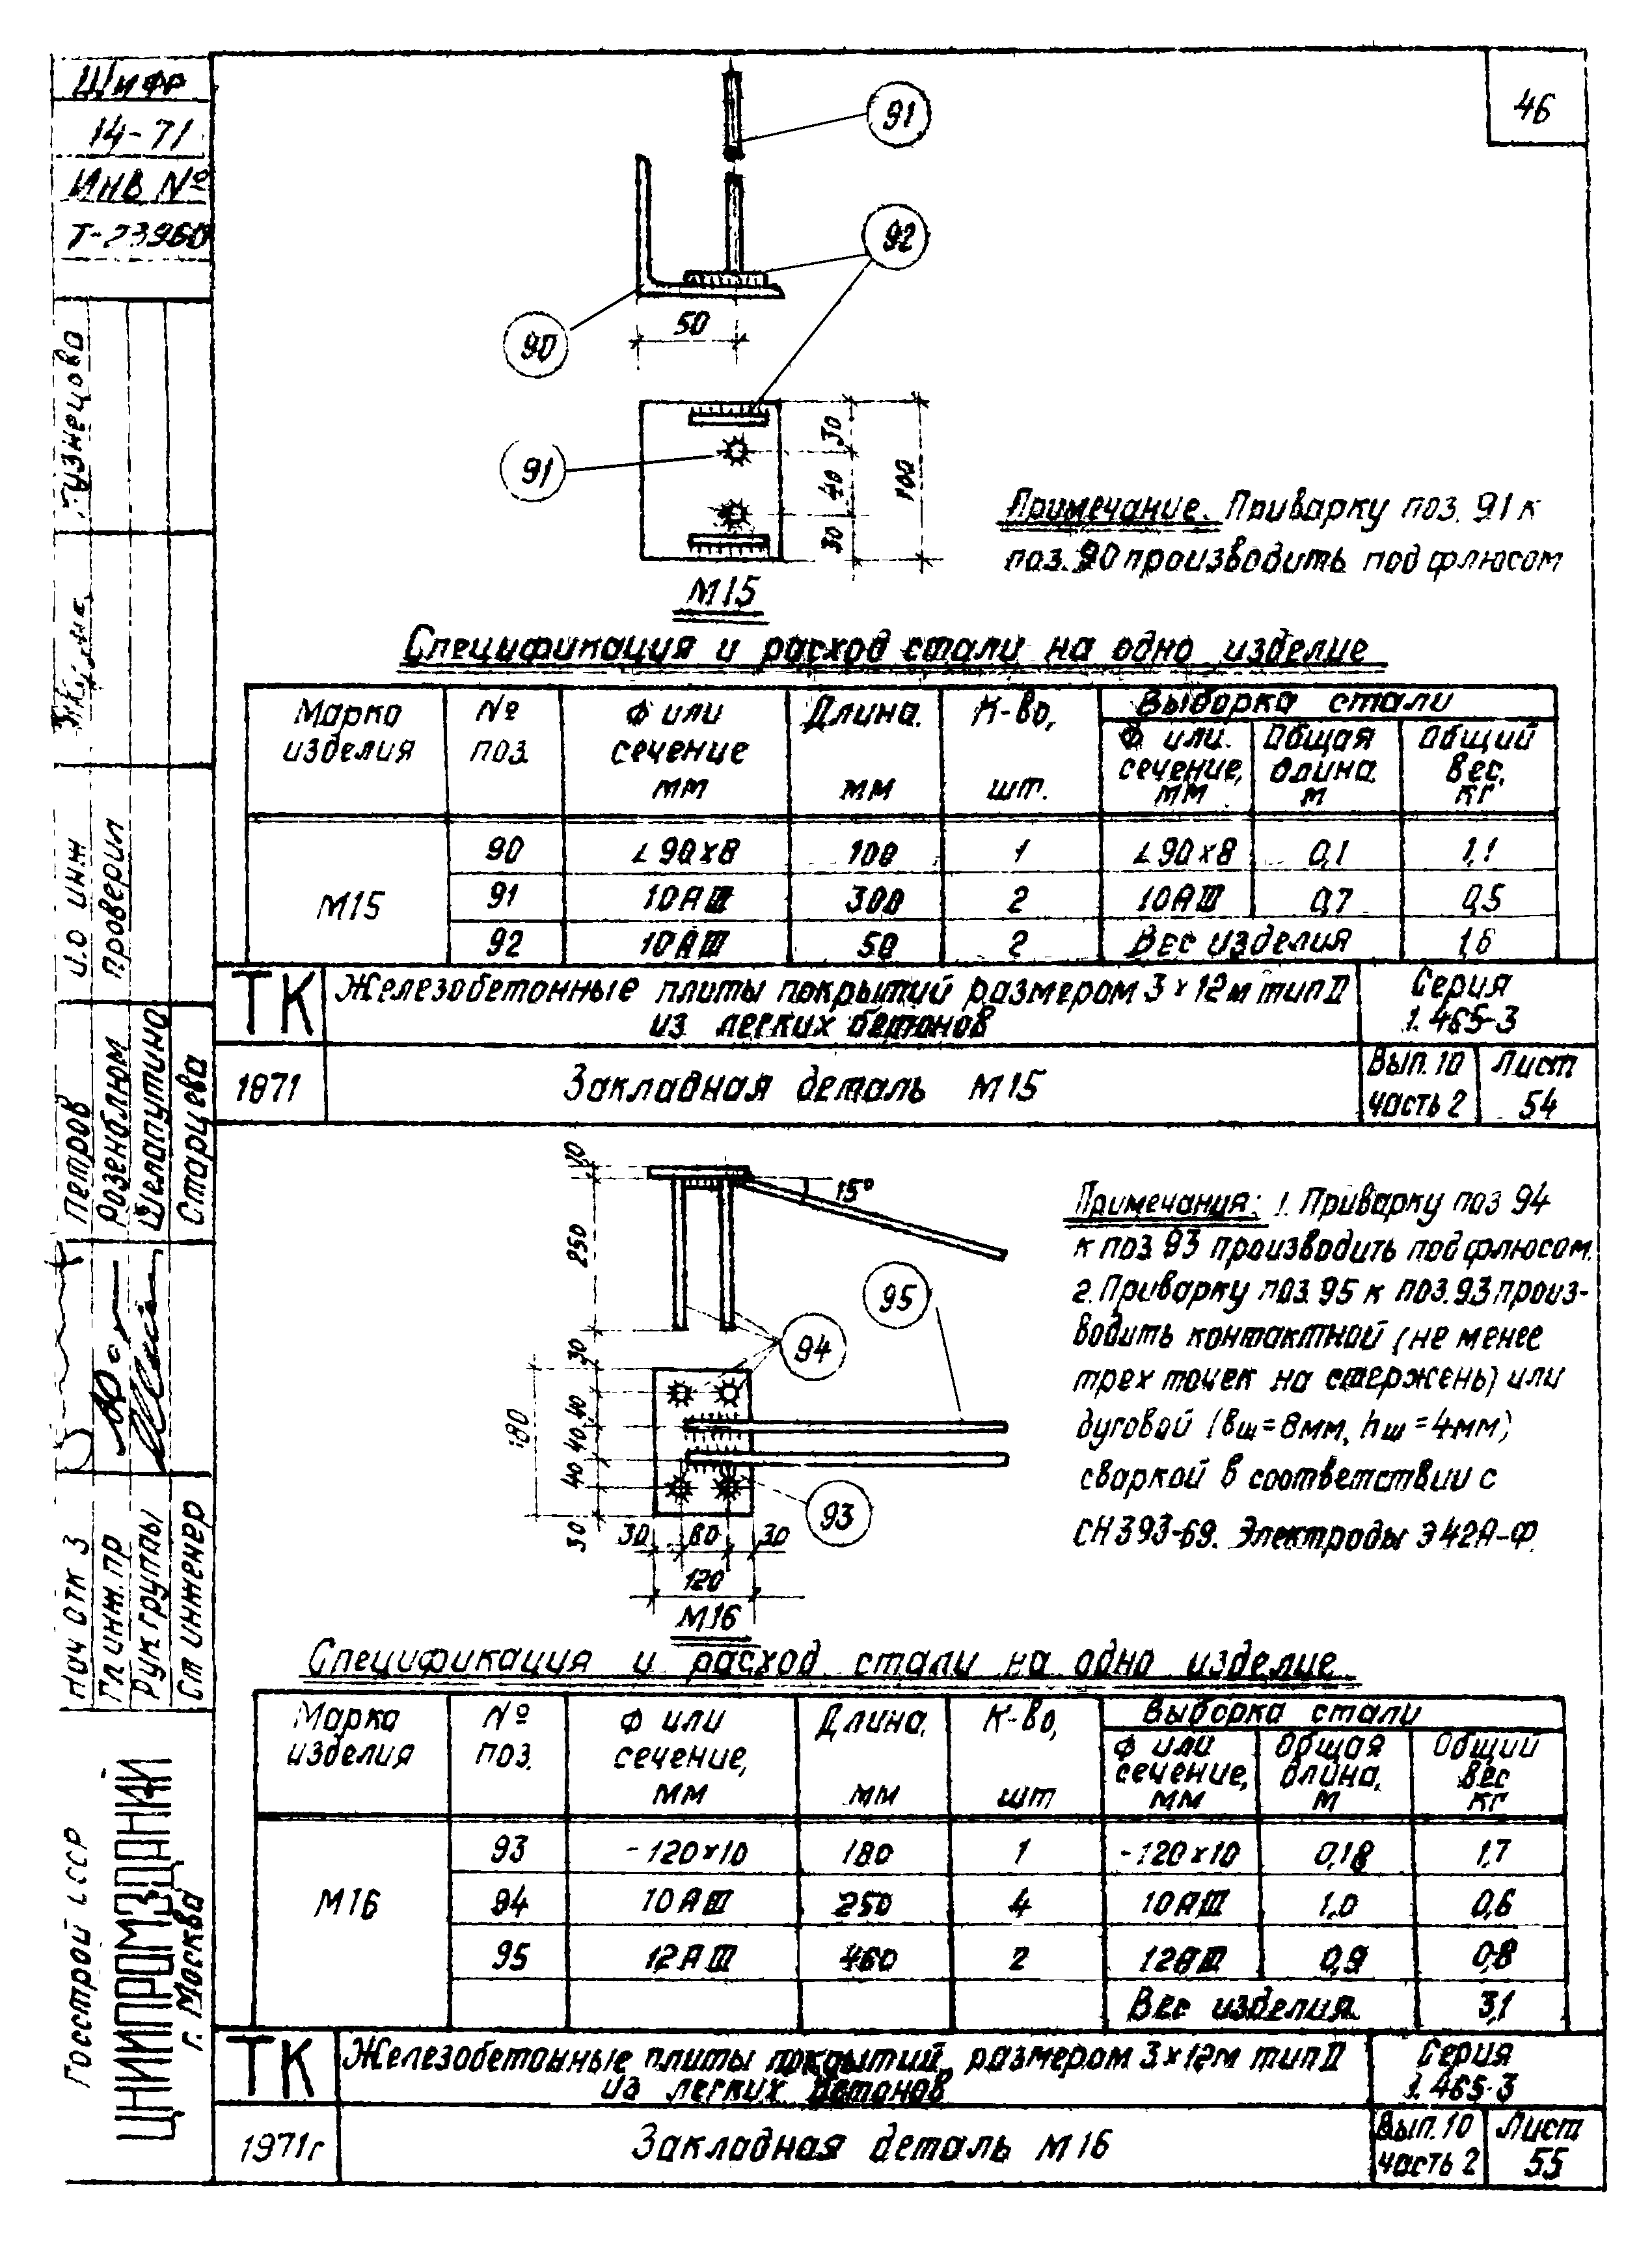 Шифр
14-71
ИНВ №
Т-23960
46
91
92
90
50
91
30
40
30
100
М15
Примечание. Приварку поз. 91 к
поз. 90 производить под флюсом
Спецификация и расход стали на одно изделие
Марка изделия | № поз. | Ф или сечение мм | Длина мм | К-во, шт. | Выборка стали
Ф или сечение, мм | Общая длина м | Общий вес, кг
М15 | 90 | ∠90х8 | 100 | 1 | ∠90х8 | 0,1 | 1,1
91 | 10АIII | 300 | 2 | 10АIII | 0,7 | 0,5
92 | 10АIII | 50 | 2 | Вес изделия | 1,6
ТК
Железобетонные плиты покрытий размером 3х12м тип II
из легких бетонов
Серия
1.465-3
1971
Закладная деталь М15
Вып. 10
часть 2
Лист
54
10
250
15°
94
95
30
40
40
40
30
180
93
30
60
30
120
М16
Примечания: 1. Приварку поз 94
к поз. 93 производить под флюсом.
2. Приварку поз. 95 к поз. 93 произ-
водить контактной (не менее
трех точек на стержень) или
дуговой (вш=8мм, hш=4мм)
сваркой в соответствии с
СН 393-69. Электроды Э42А-Ф.
Спецификация и расход стали на одно изделие
Марка изделия | № поз. | Ф или сечение, мм | Длина. мм | К-во, шт | Выборка стали
Ф или сечение, мм | Общая длина, м | Общий вес кг
М16 | 93 | -120х10 | 180 | 1 | -120х10 | 0,18 | 1,7
94 | 10АIII | 250 | 4 | 10АIII | 1,0 | 0,6
95 | 12АIII | 460 | 2 | 12АIII | 0,9 | 0,8
Вес изделия | 3,1
ТК
Железобетонные плиты покрытий размером 3х12м тип II
из легких бетонов
Серия
1.465-3
1971г
Закладная деталь М16
Вып. 10
часть 2
Лист
55
Нач отк 3
Петров
Гл инж. пр
Розенблюм
проверил
Рук группы
Шелапутина
Ст инженер
Старцева
Госстрой СССР
ЦНИИПРОМЗДАНИЙ
г. Москва